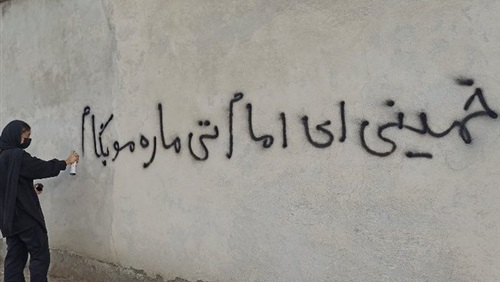 خمینی ای امام تی ماره موبگام